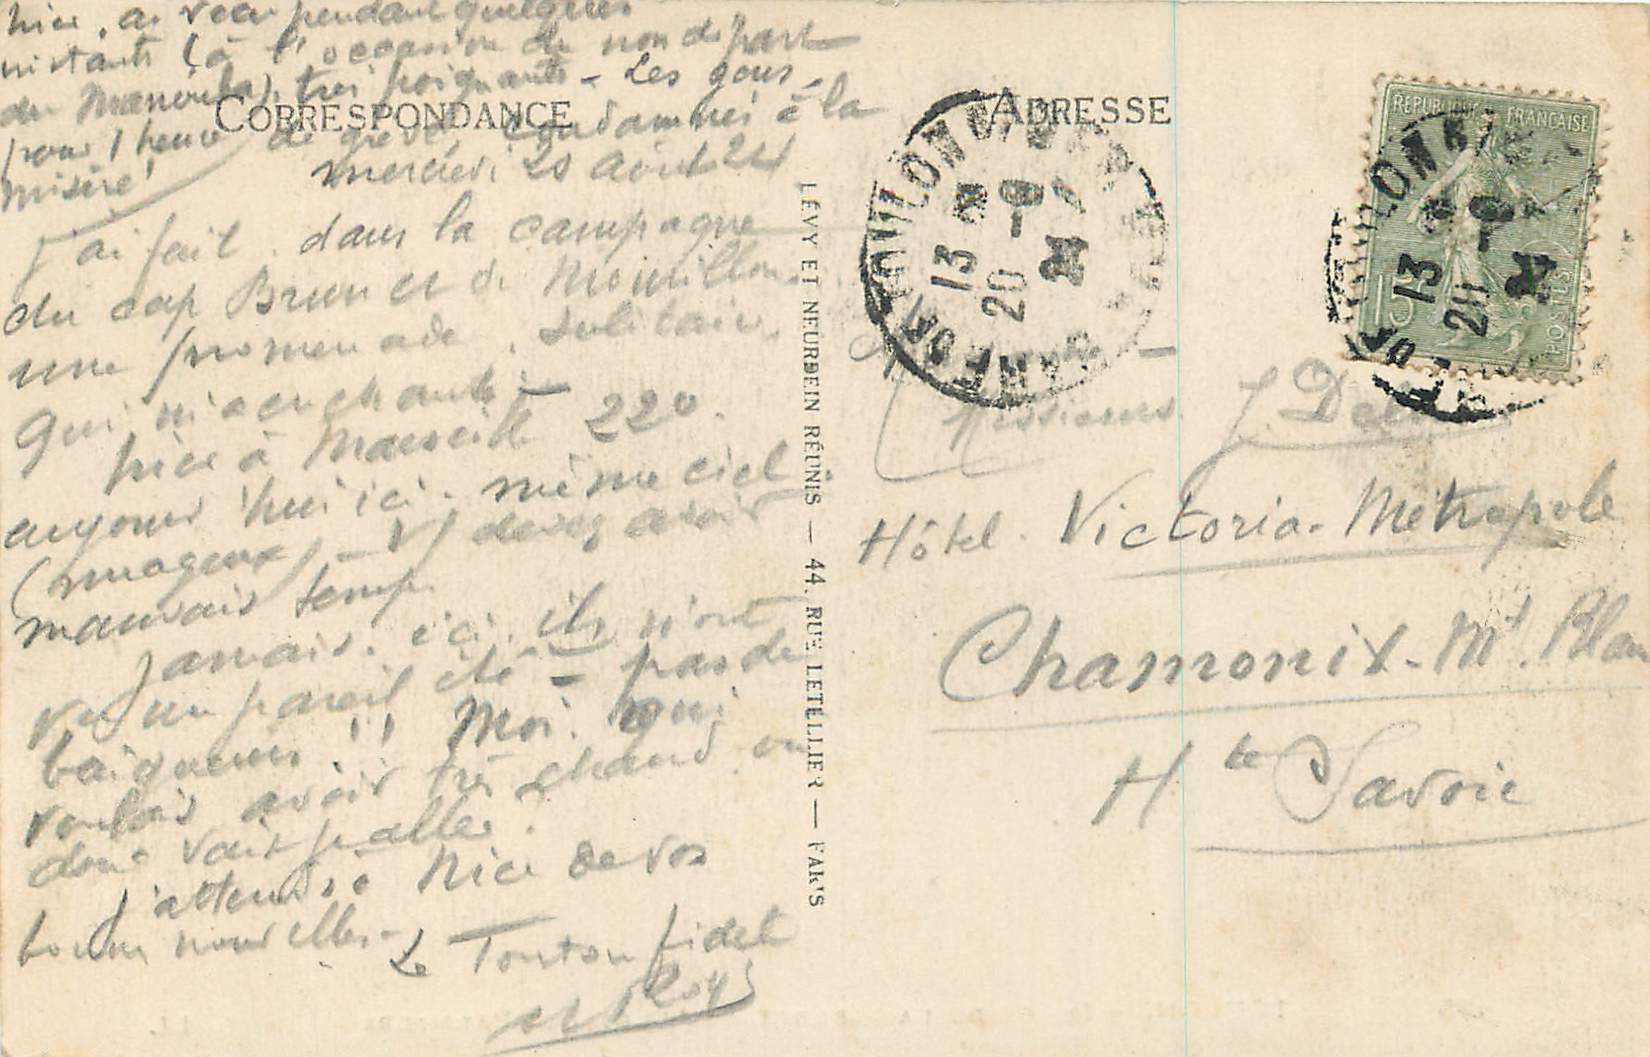 Nice, ai vécu pendant quelques
instants (à l'occasion du non départ
du Manouba) très poignants - Les gens,
pour 1 heure de grève, condamnés à la
misère!
CORRESPONDANCE
mercredi 20 août 24
J'ai fait dans la campagne
du cap Brun et du Mourillon
une promenade solitaire
qui m'a enchanté -
Nice à Marseille 22°.
aujourd'hui ici. même ciel
(nuageux) - V/ devez avoir
mauvais temps
Jamais ici ils n'ont
vu un pareil été - pas de
baigneurs !! Moi qui
voulais avoir très chaud ou
donc vais-je aller.
J'attends à Nice de vos
bonnes nouvelles -
Le Tonton fidèle
LÉVY ET NEURDEIN RÉUNIS — 44, RUE LETELLIER — PARIS
ADRESSE
TOULON
GARE
13
20 - 8
24
RÉPUBLIQUE FRANÇAISE
15
POSTES
TOULON
13
20 - 8
24
Messieurs J.
Hôtel Victoria-Métropole
Chamonix-Mt Blanc
Hte Savoie